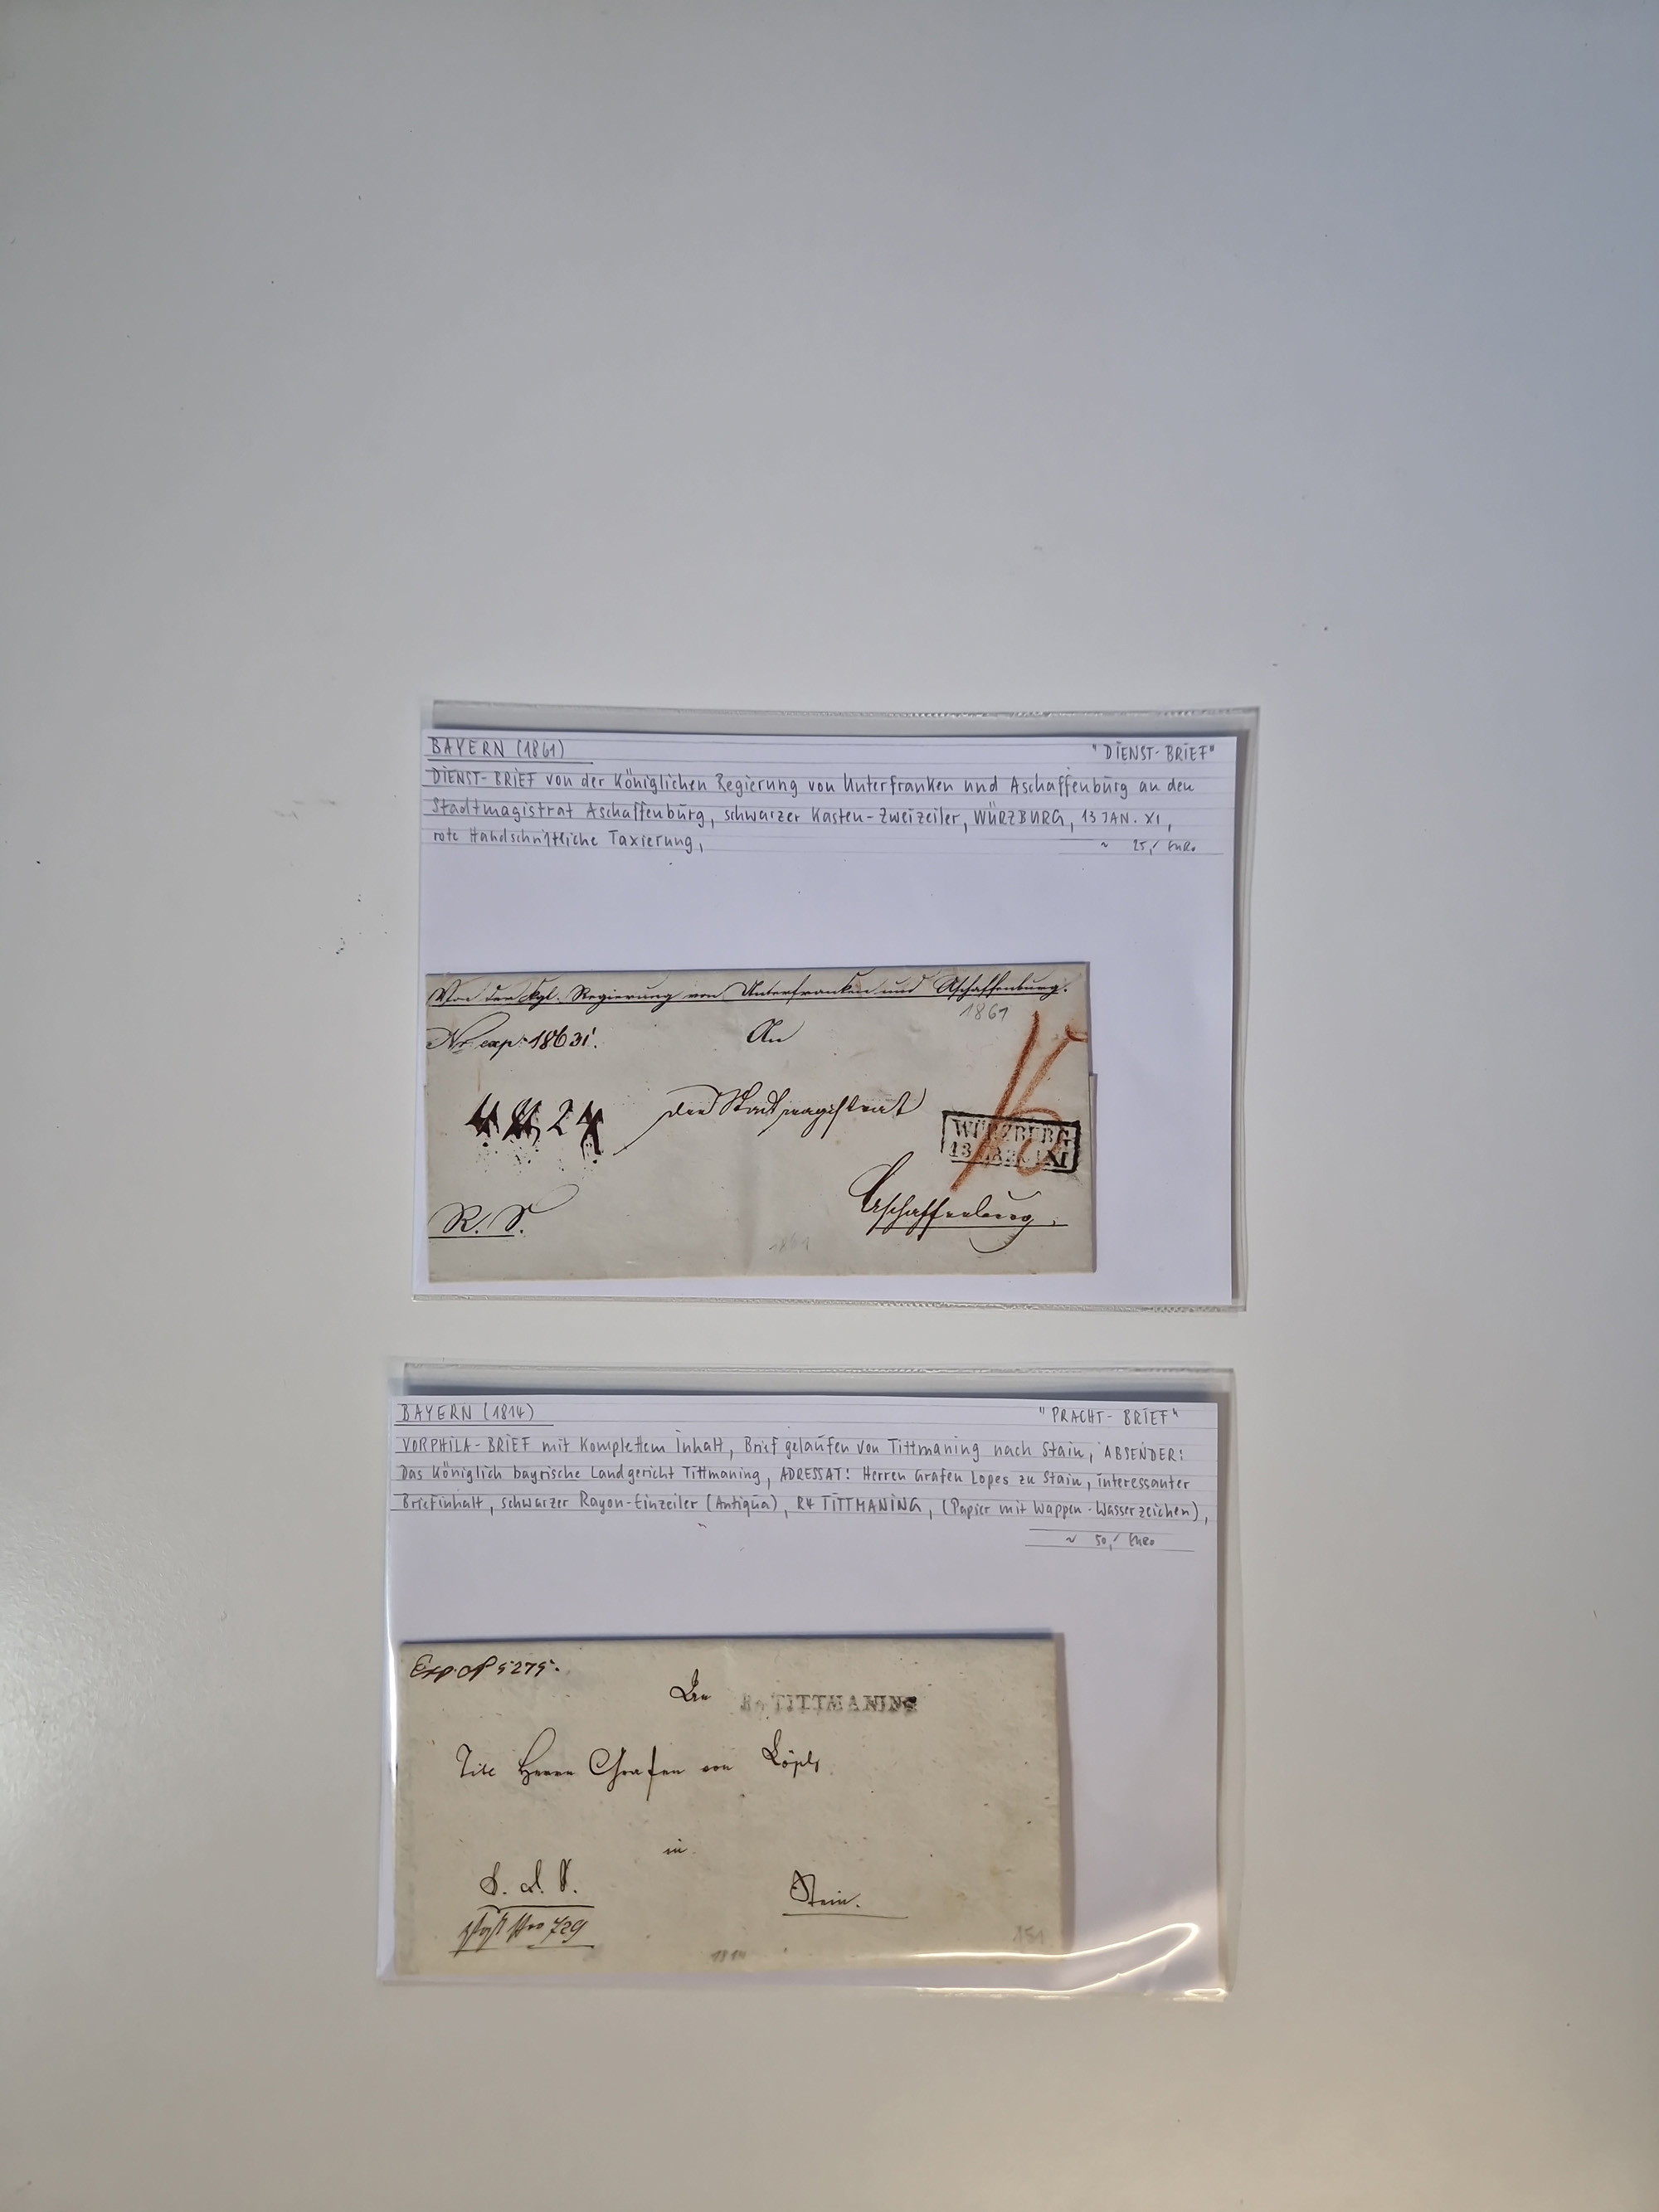 BAYERN (1861) "DIENST-BRIEF"
DIENST-BRIEF von der Königlichen Regierung von Unterfranken und Aschaffenburg an den
Stadtmagistrat Aschaffenburg, schwarzer Kasten-Zweizeiler, WÜRZBURG, 13 JAN. XI,
rote Handschriftliche Taxierung,
~ 25,- EURo
Von der Kgl. Regierung von Unterfranken und Aschaffenburg.
1861
Nr. exp. 18631.
An
den Stadtmagistrat
WÜRZBURG
13 XI
Aschaffenburg.
R. S.
1861
BAYERN (1814) "PRACHT-BRIEF"
VORPHILA-BRIEF mit Komplettem Inhalt, Brief gelaufen von Tittmaning nach Stain, ABSENDER:
Das Königlich bayrische Landgericht Tittmaning, ADRESSAT: Herren Grafen Lopes zu Stain, interessanter
Briefinhalt, schwarzer Rayon-Einzeiler (Antiqua), R4 TITTMANING, (Papier mit Wappen-Wasserzeichen),
~ 50,- EURo
Exp. 5275.
An
R4 TITTMANING
Herrn Grafen von
in
Stein.
729
1814